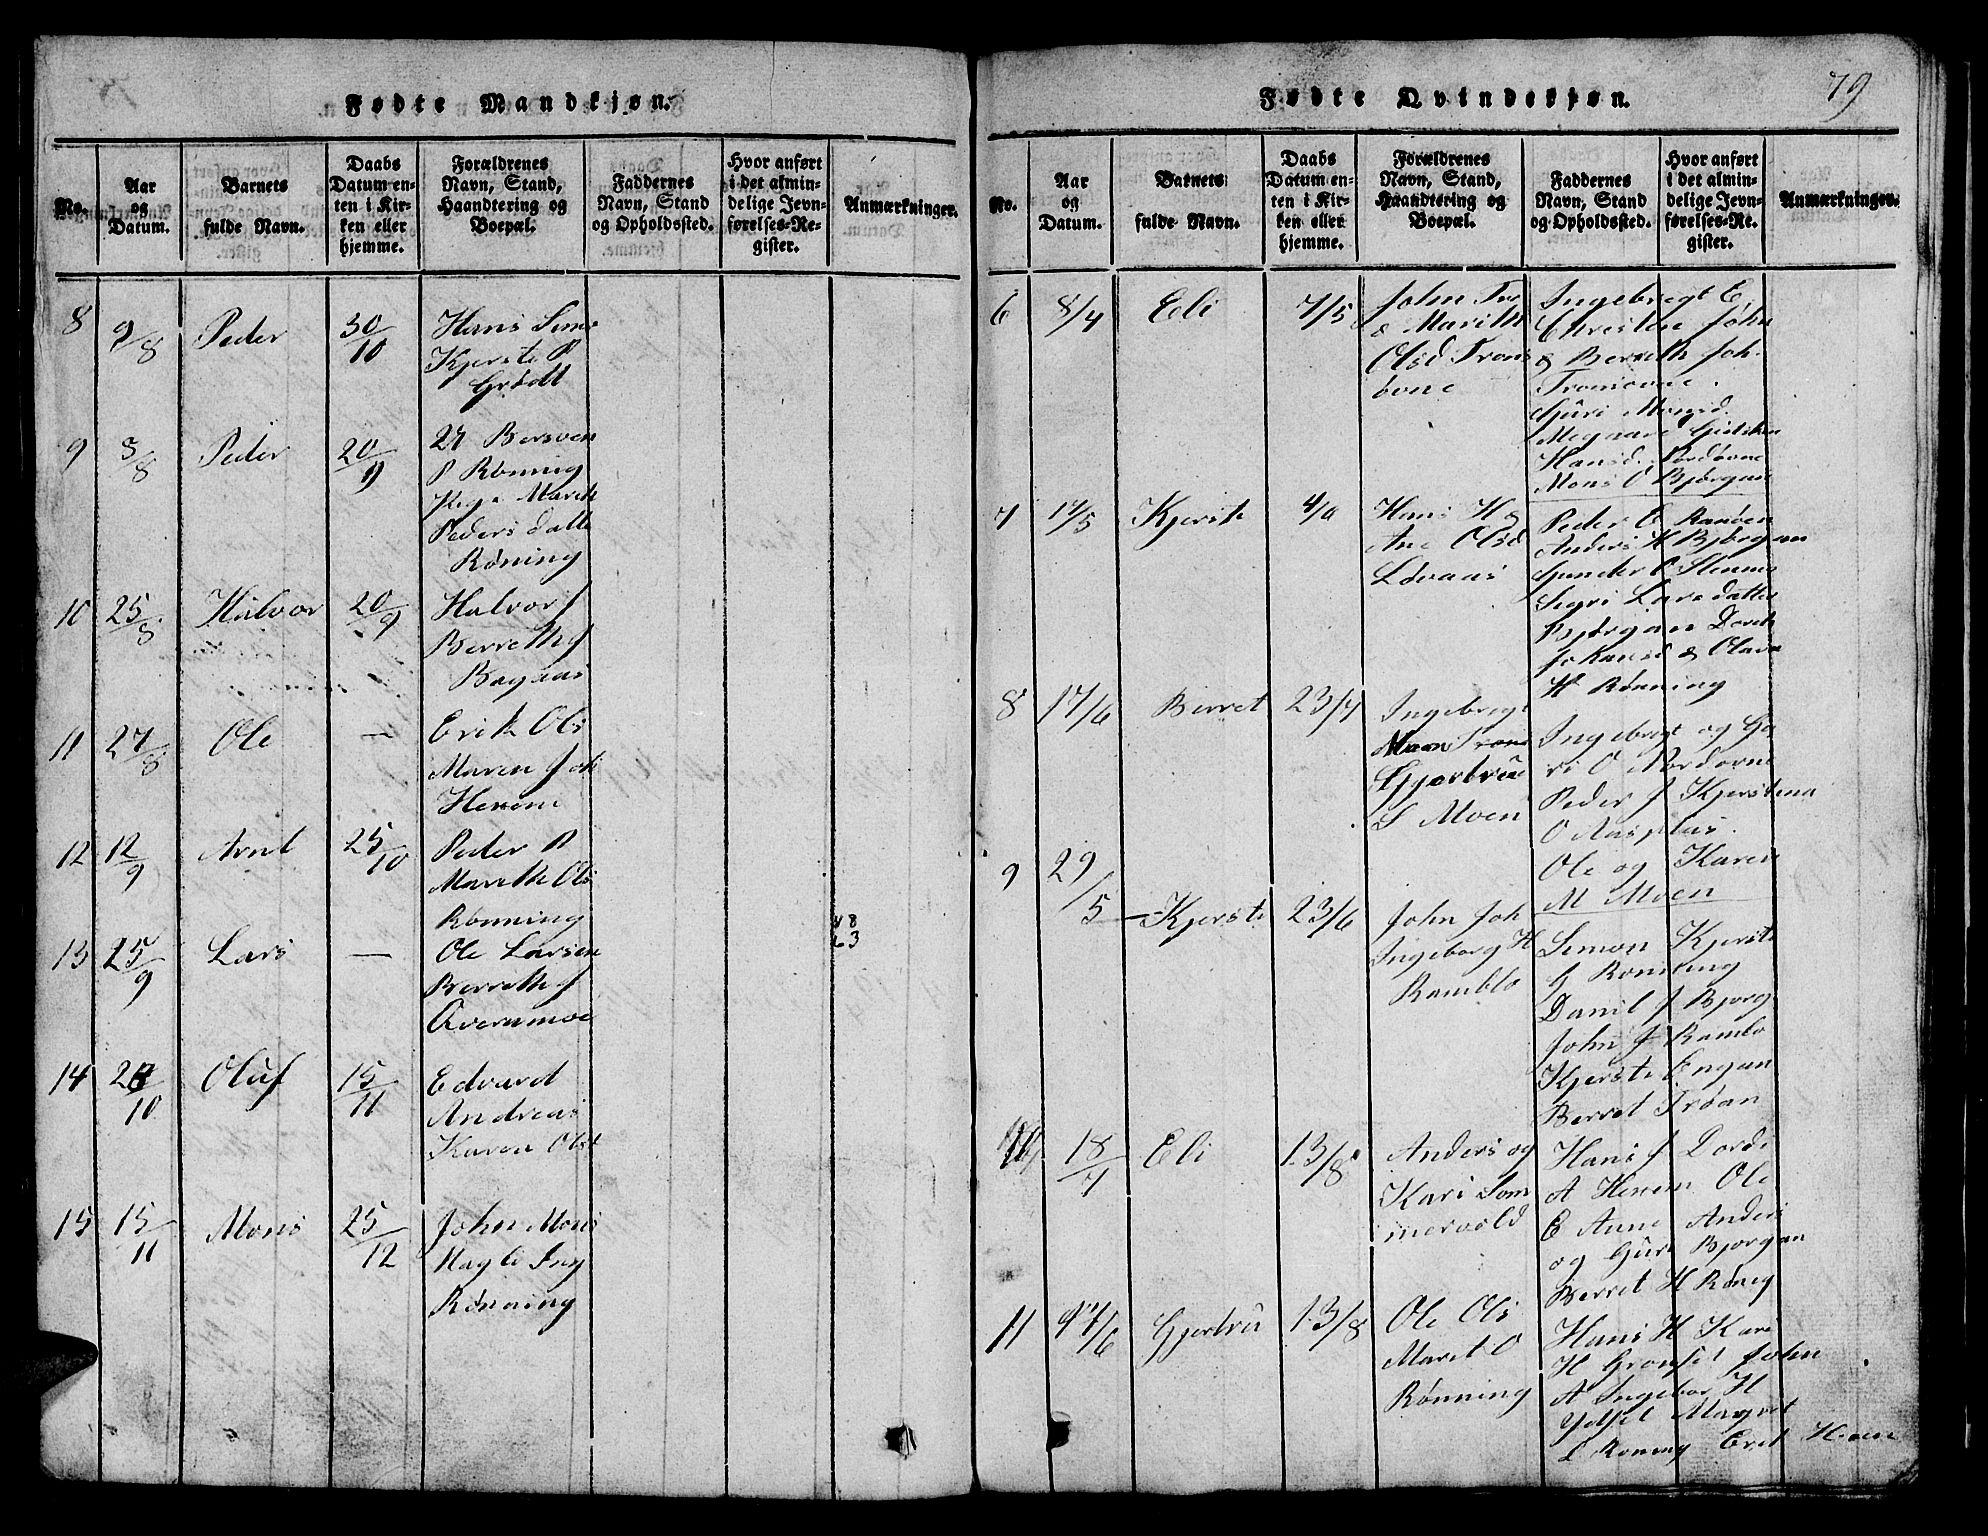 Fødte Mandkjøn.
No.
Aar
og
Datum.
Barnets
fulde Navn.
Daabs
Datum en-
ten i Kir-
ken eller
hjemme.
Forældrenes
Navn, Stand,
Haandtering og
Boepæl.
Faddernes
Navn, Stand
og Opholdssted.
Hvor anført
i det almin-
delige Jevn-
førelses-Re-
gister.
Anmærkninger.
8 9/8 Peder 30/10 Hans Simo
Kjerste P
Grødt
9 3/8 Peder 20/9 Bersven
P Rønning
Marith
Peders datte
Røning
10 25/8 Halvor 20/9 Halvor J
Berreth J
Bagaas
11 27/8 Ole — Erik Ols
Maren Joh
Henem
12 12/9 Arnt 25/10 Peder P
Marith Ols
Rønning
13 25/9 Lars — Ole Larsen
Berreth J
Overnmoe
14 /10 Oluf 15/11 Edvard
Andreas
Karen Olst
15 15/11 Mons 25/12 John Mons
Magli Ing
Rønning
79
Fødte Qvindekjøn.
No.
Aar
og
Datum.
Barnets
fulde Navn.
Daabs
Datum en-
ten i Kir-
ken eller
hjemme.
Forældrenes
Navn, Stand,
Haandtering og
Boepæl.
Faddernes
Navn, Stand
og Opholdssted.
Hvor anført
i det almin-
delige Jevn-
førelses-Re-
gister.
Anmærkninger.
6 8/4 Eli 7/5 John Tro
& Marith
Olsd Trons
ovne
Ingebrigt E
Christen John
& Berreth Joh.
Tronsovne.
Guri Monsd.
Megaare
Hansd. Nordovne
Mons O Bjørgan
7 17/5 Kjersti Hans H &
Ane Olsd
Løvaas
Peder E Ranøen
Anders H Bjørgan
Gunder O Stenmo
Sigri Larsdatter
Bjørgan Dorth
Johansd & Olava
H Rønning
8 17/6 Berret 23/7 Ingebrigt
Moen
Gjertrue
S Moen
Ingebrigt og Gu
ri O Nordovne
Peder J Kjerstena
O Aasplas.
Ole og Karen
M Moen
9 29/5 Kjersti 23/6 John Joh
Ingeborg H
Ramblo
Simon Kjersti
G Rønning
Danil J Bjorg
John J Rambo
Kjersti Engan
Berret Trøan
10 18/7 Eli 13/8 Anders og
Kari Som
mervold
Hans J Dordi
A Henem Ole
E Aune Anders
og Guri Bjorgan
Berret H Røneg
11 Gjertru 13/8 Ole Ols
Maret O
Rønning
Hans H Kari
H Grønset John
A Ingebor H
Ydset Margret
L Roning Eret Henem